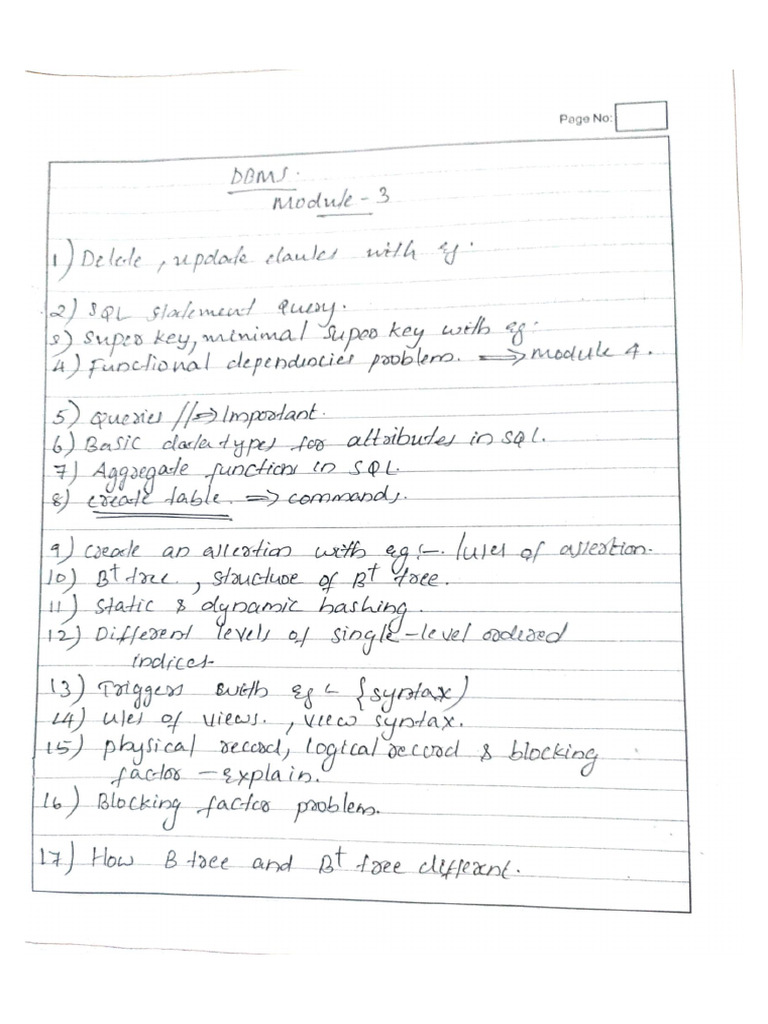 Page No:
DBMS.
Module - 3
1) Delete, update clauses with eg.
2) SQL statement query.
3) Super key, minimal super key with eg:
4) Functional dependencies problem. ⟹ module 4.
5) Queries //⇒ Important.
6) Basic data types for attributes in SQL.
7) Aggregate function in SQL.
8) create table. ⇒ commands.
9) Create an assertion with eg :- /uses of assertion.
10) B+ tree, structure of B+ tree.
11) Static & dynamic hashing.
12) Different levels of single-level ordered
indices
13) Triggers with eg :- {syntax)
14) uses of views. , view syntax.
15) physical record, logical record & blocking
factor - explain.
16) Blocking factor problem.
17) How B tree and B+ tree different.